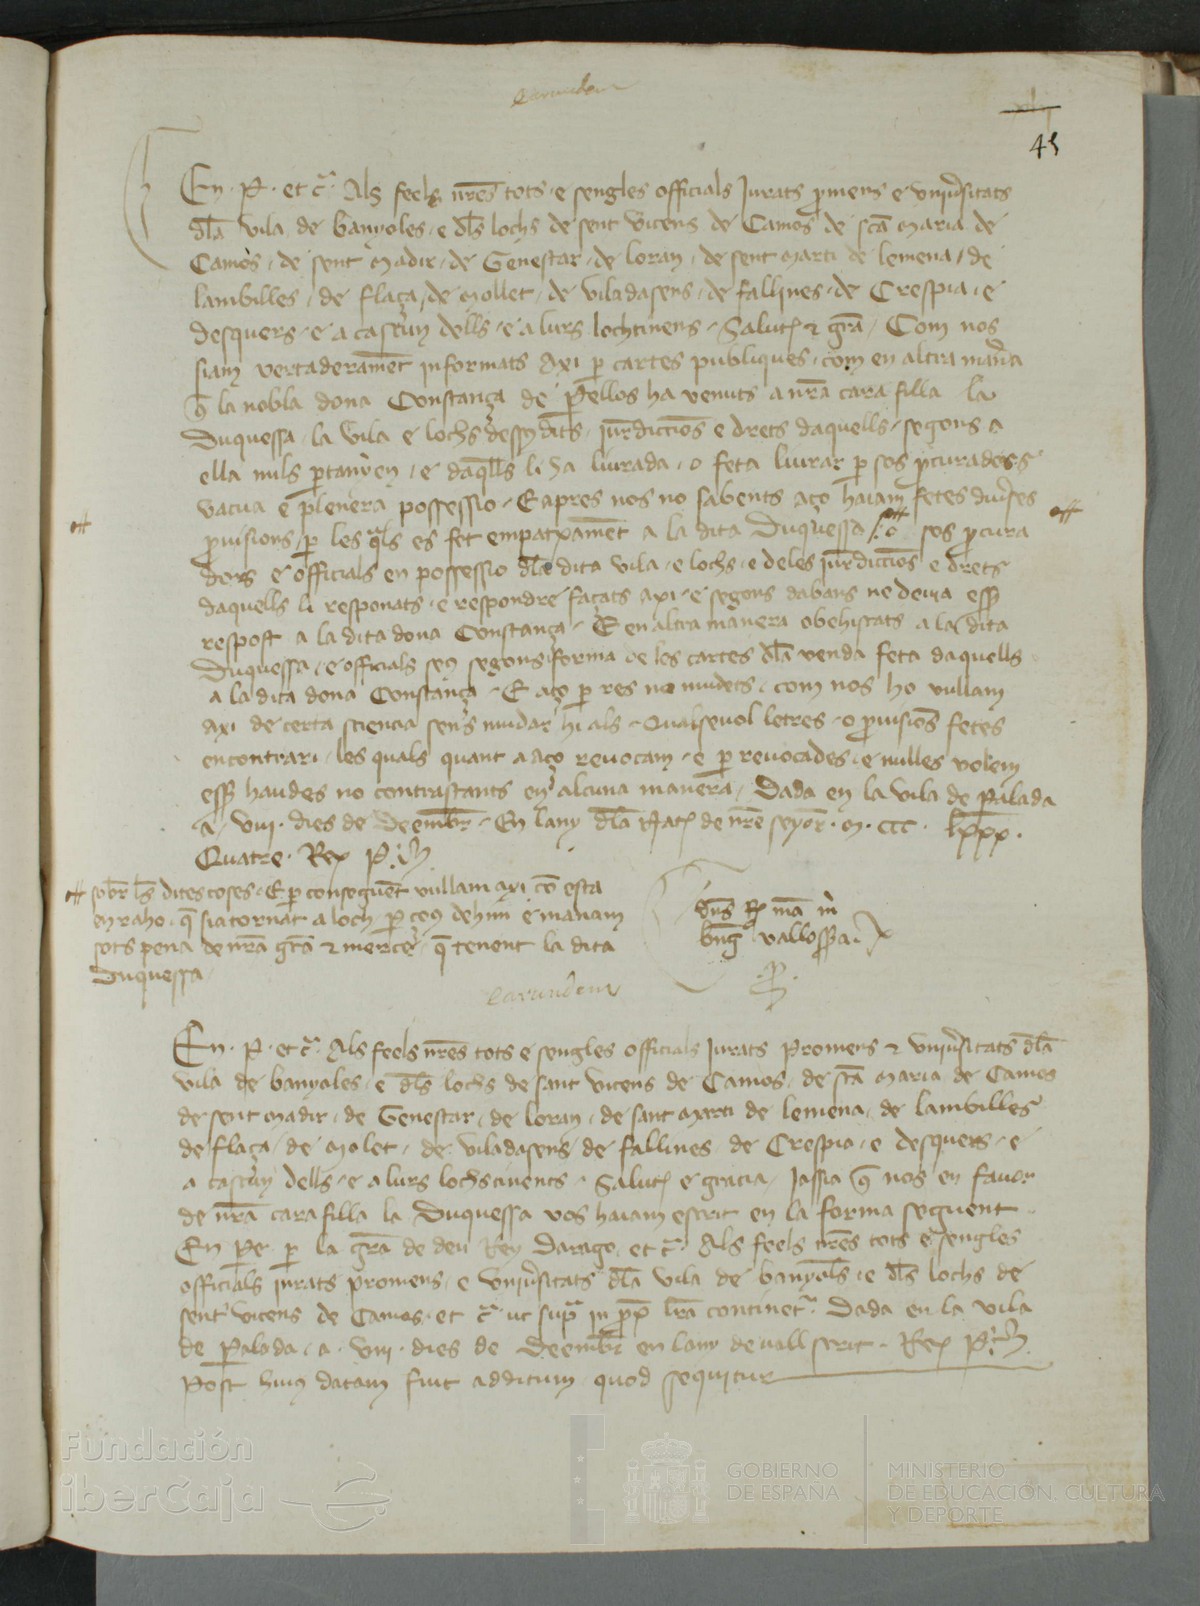 earundem
45
En · P · et c̃ · Als feels nr̃es tots e sengles officials Jurats ꝓmens e vniũsitats
dl̃a vila de banyoles · e dl̃s lochs de sent vicens de Camos de sc̃a maria de
Camos · de sent madir · de Genestar · de loran · de sent marti de lemena / de
lambilles · de flaça / de mollet · de viladasens · de fallines · de Crespia · e
desquers · e a cascun dells · e a lurs lochtinens · Salut & gr̃a / Com nos
siam vertaderamẽt informats axi ꝑ cartes publiques · com en altra mañа
q̃ la nobla dona Constança de Pẽllos ha venuts a nr̃a cara filla la
Duquessa · la vila e lochs dessus dits · jur̃diccions e drets daquells · segons a
ella mils ꝑtanyen · e daq̃lls li ha liurada · o feta liurar ꝑ sos ꝓcuradors
vacua e plenera possessio · E apres nos no sabents aço haiam fetes diũses
ꝓuisions / ꝑ les q̃ls es fet empatxamẽt a la dita Duquessa / o sos ꝓcura
dors e officials en possessio dl̃a dita vila · e lochs · e deles jur̃diccions e drets
daquells li responats · e respondre façats axi · e segons dabans ne deuia ess̃
respost a la dita dona Constança · E en altra manera obehiscats a la dita
Duquessa · e officials seus segons forma de les cartes dl̃a venda feta daquells
a la dita dona Constança · E aço ꝑ res no mudets · com nos ho vullam
axi de certa sciencia sens mudar hi als · Qualseuol letres · o ꝓuisions fetes
encontrari · les quals quant a aço reuocam · e ꝑ reuocades · e nulles volem
ess̃ haudes no contrastants en alcuna manera / Dada en la vila de Palada
a · viii · dies de Deembr̃ · En lany dl̃a Nat̃ de nr̃e senyor · m · ccc · lxxx ·
Quatre · Rex P ·
sobr̃ les dites coses · E ꝑ conseguẽt vullam axi cõ esta
en raho · q̃ sia tornat a loch · ꝑ ço us dehim e manam
sots pena de nr̃a gr̃a & merce · q̃ tenent la dita
Duquessa ·
dñs Rex mã m̃
bñg̃ vallossa ·
P̃ ·
earundem
En · P · et c̃ · Als feels nr̃es tots e sengles officials Jurats Promens & vniũsitats dl̃a
vila de banyoles · e dl̃s lochs de sant vicens de Camos · de sc̃a maria de Camos
de sent madir · de Genestar · de loran · de sant Marti de lemena · de lambilles
de flaça · de molet · de viladasens · de fallines · de Crespia · e desquers · e
a cascun dells · e a lurs lochstinents · Salut e gracia / Jassia q̃ nos en fauor
de nr̃a cara filla la Duquessa vos haiam escrit en la forma seguent
En Pe · ꝑ la gr̃a de deu Rey Darago · et c̃ · Als feels nr̃es tots e sengles
officials iurats promens · e vniũsitats dl̃a vila de banyol̃s · e dl̃s lochs de
sent vicens de Camos · et c̃ · ut sup̃a in ꝓx̃ lr̃a continet̃ · Dada en la vila
de Palada · a · viii · dies de Deembr̃ en lany deuall scrit · Rex P ·
Post huius datam fuit additum quod sequitur
Fundación
iberCaja
GOBIERNO
DE ESPAÑA
MINISTERIO
DE EDUCACIÓN, CULTURA
Y DEPORTE